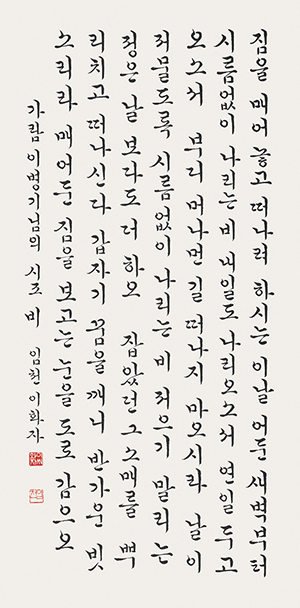 짐을 매어 놓고 떠나려 하시는 이날 어둔 새벽부터
시름없이 나리는 비 내일도 나리오소서 연일 두고
오소서 부디 머나먼 길 떠나지 마오시라 날이
저물도록 시름없이 나리는 비 저으기 말리는
정은 날 보다도 더 하오 잡았던 그 소매를 뿌
리치고 떠나신다 갑자기 꿈을 깨니 반가운 빗
소리라 매어둔 짐을 보고는 눈을 도로 감으오
가람 이병기님의 시조 비 임천 이화자